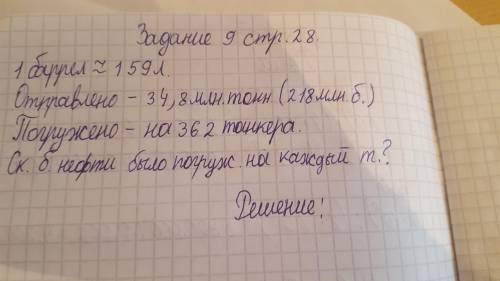 Задание 9 стр. 28.
1 баррел ≈ 159л.
Отправлено - 34,8 млн. тонн. (218 млн. б.)
Погружено - на 362 танкера.
Ск. б. нефти было погруж. на каждый т.?
Решение: